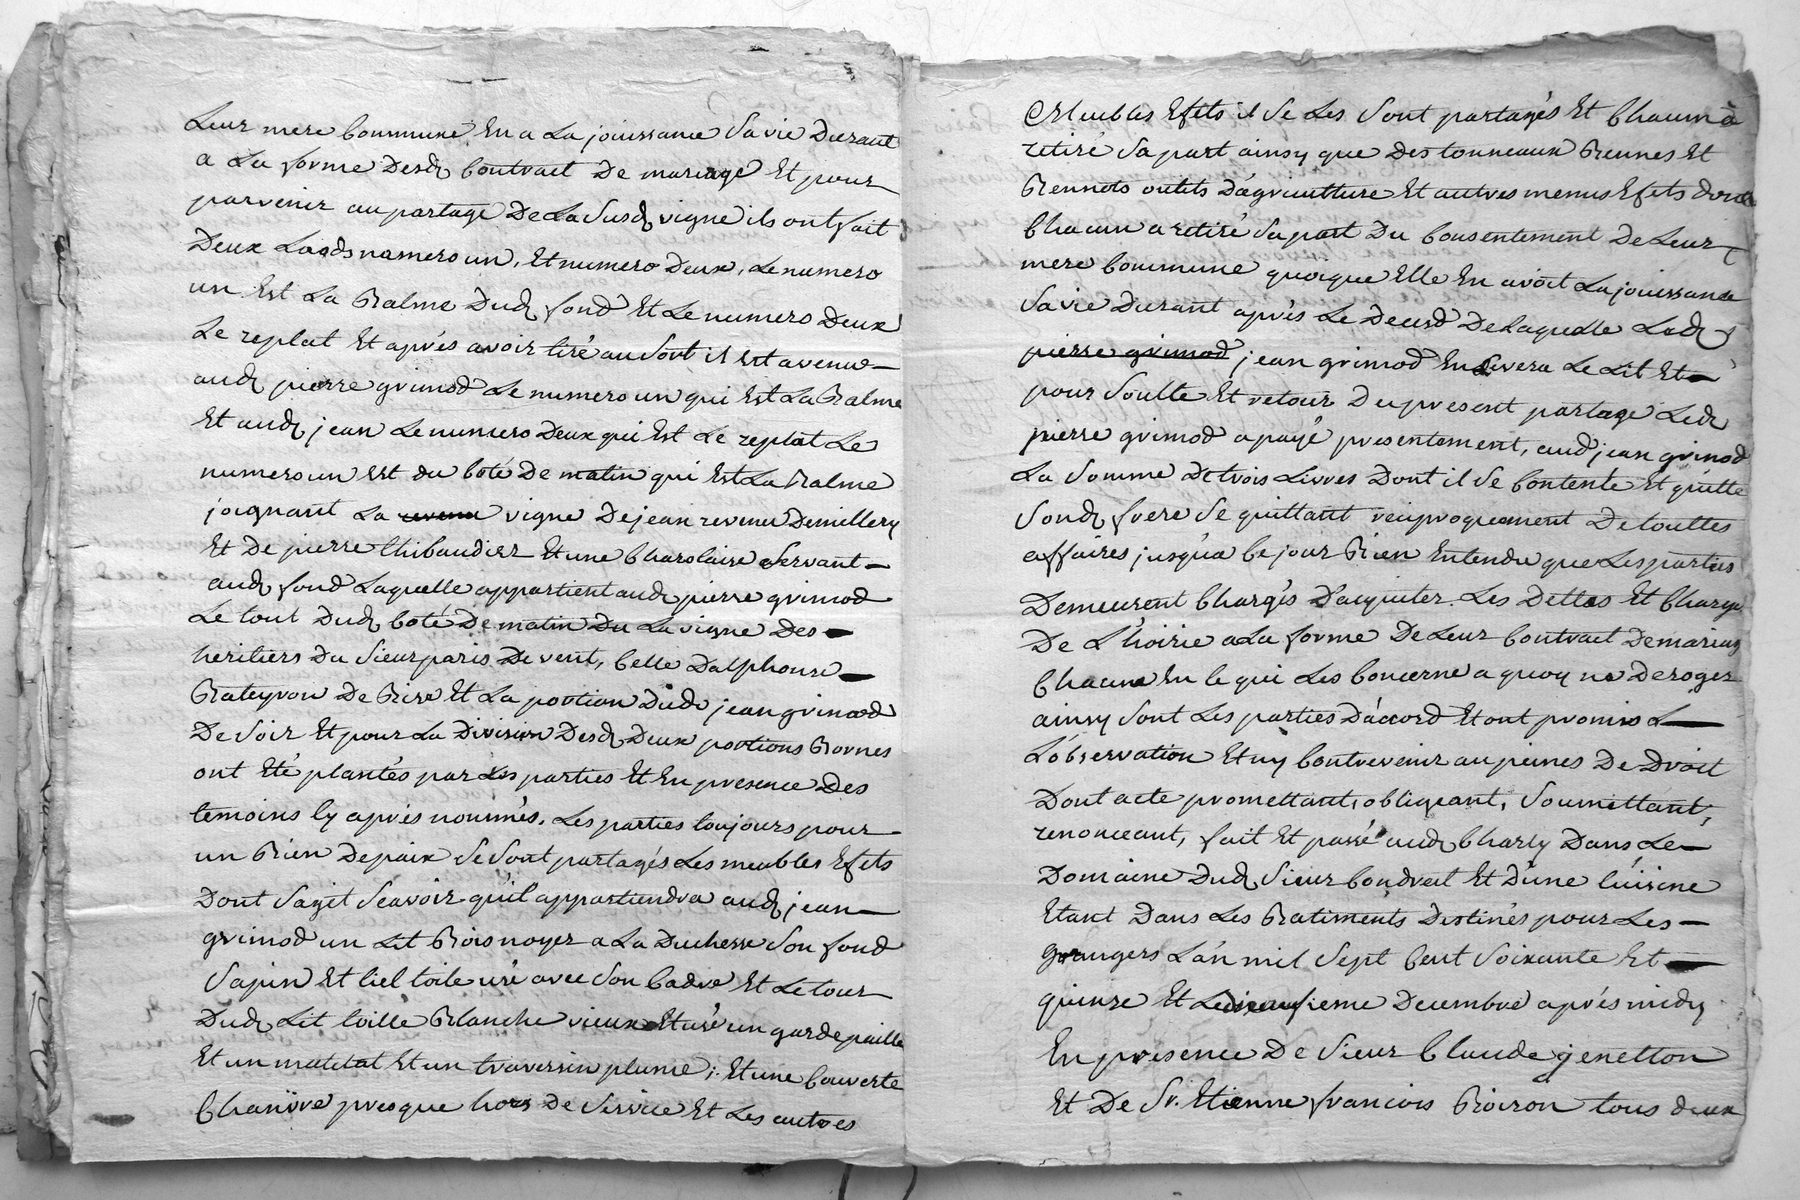 Leur mere Commune En a La jouissance Sa vie Durant
a La forme Desd Contrait De mariage Et pour
parvenir au partage De La Susd vigne ils ont fait
Deux Lods numero un, Et numero Deux, Le numero
un Est La Balme Dud fond Et Le numero Deux
Le replat Et aprés avoir tiré au Sort il est avenu
aud pierre grimod Le numero un qui Est La Balme
Et aud jean Le numero Deux qui Est Le replat Le
numero un est du Coté De matin qui Est La Balme
joignant La vigne De jean revenu De millery
Et De pierre thibaudier Et une Charolaire Servant
aud fond Laquelle appartient aud pierre grimod
Le tout Dud Coté De matin Du La vigne Des
heritiers Du Sieur paris De vent, Celle Dalphonse
Bateyron De Bise Et La portion Dud jean grimod
De Soir Et pour La Division Desd Deux portions Bornes
ont Eté plantés par Les parties Et En presence Des
temoins Cy aprés nommés. Les parties toujours pour
un Bien De paix Se Sont partagés Les meubles Efets
Dont Sagit Scavoir qu'il appartiendra aud jean
grimod un Lit Bois noyer a La Duchesse Son fond
Sapin Et Ciel toile usé avec Son Cadre Et Le tour
Dud Lit toille Blanche vieux Et usé un garde paille
Et un matelat Et un traversin plume; Et une Couverte
Chanvre presque hors De Service Et Les autres
Meubles Efets il Se Les Sont partagés Et Chacun à
retiré Sa part ainsy que Des tonneaux Bennes Et
Bennots outils D'agriculture Et autres menus Efets dont
Chacun a retiré Sa part Du Consentement De Leur
mere Commune quoique Elle En avoit La jouissance
Sa vie Durant aprés Le Decsd De Laquelle Led
pierre grimod jean grimod En Levera Le Lit Et
pour Soulte Et retour Du present partage Led
pierre grimod a payé presentement, aud jean grimod
La Somme De trois Livres Dont il Se Contente Et quitte
Sond frere Se quittant reciproquement De touttes
affaires jusqu'a Ce jour Bien Entendu que Les parties
Demeurent Chargés D'acquiter Les Dettes Et Charges
De L'hoirie a La forme De Leur Contrait De mariag
Chacune En Ce qui Les Concerne a quoy ne Deroger
ainsy Sont Les parties D'accord Et ont promis L
L'observation Et ny Contrevenir au peines De Droit
Dont acte promettant, obligeant, Soumettant,
renonceant, fait Et passé aud Charly Dans Le
Domaine Dud Sieur Condrait Et D'une Cuisine
Etant Dans Les Batiments Destinés pour Les
grangers L'an mil Sept Cent Soixante Et
quinze Et Le Decembre aprés midy
En presence De Sieur Claude jenetton
Et De Sr. Etienne francois Boiron tous deux